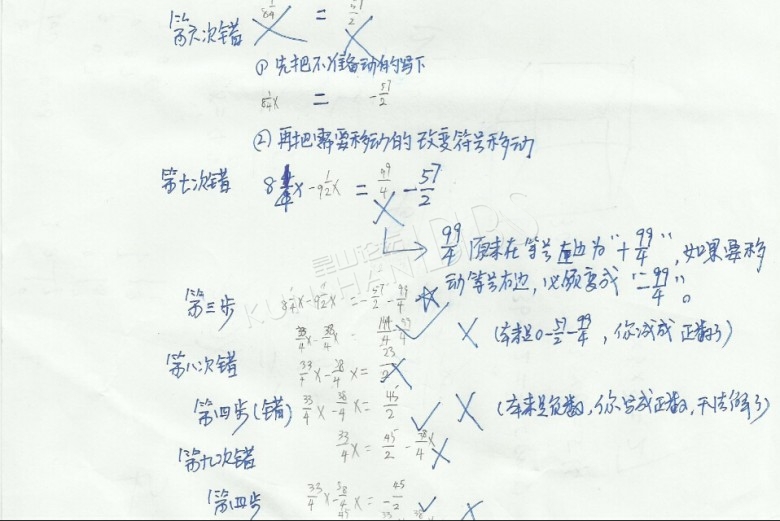 第六次错 8¼ = 57/2
① 先把不准备动的写下
8¼x = -57/2
② 再把需要移动的改变符号移动
第七次错 8¼x-9½x = 99/4-57/2
→ 99/4 原来在等号左边为"+99/4",如果要移
动等号右边,必须变成"-99/4"。
第三步 8¼x-9½x=-57/2-99/4
33/4x-38/4x (本来是0-57/2-99/4,你减成正数了)
第八次错 33/4x-38/4x=
第四步(错) 33/4x-38/4x=45/2 (本来是负数,你写成正数,无法解了)
第九次错 33/4x=45/2-38/4x
第四步 33/4x-38/4x=-45/2
昆山论坛
KUNSHAN BBS